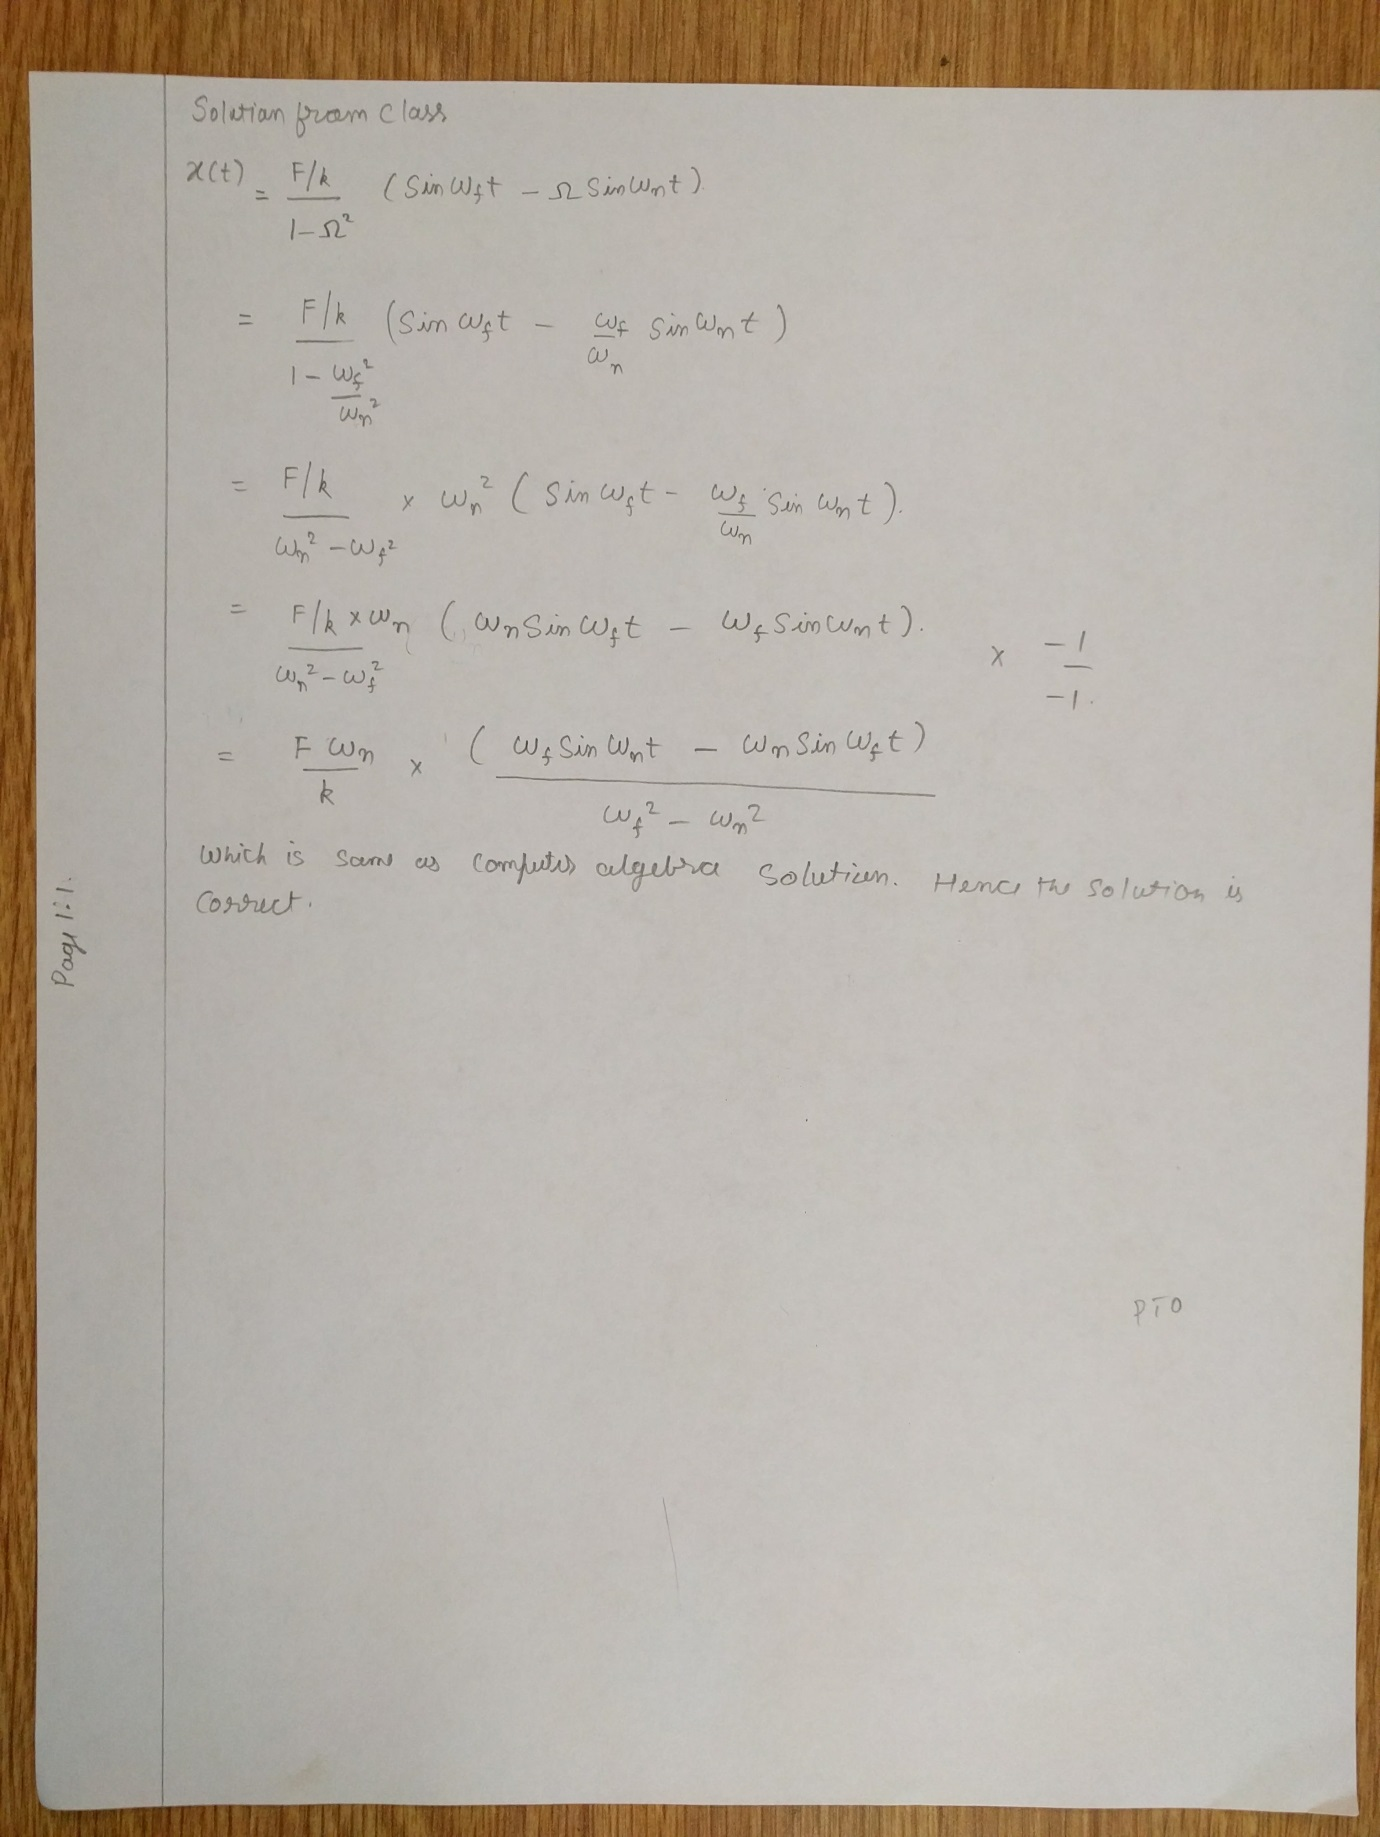 Solution from Class
x(t) = F/k / 1-Ω² (Sin ωft - Ω Sin ωnt)
= F/k / 1 - ωf²/ωn² (Sin ωft - ωf/ωn Sin ωnt)
= F/k / ωn² - ωf² × ωn² (Sin ωft - ωf/ωn Sin ωnt).
= F/k × ωn / ωn² - ωf² (ωn Sin ωft - ωf Sin ωnt). × -1 / -1.
= F ωn / k × (ωf Sin ωnt - ωn Sin ωft) / ωf² - ωn²
Which is same as computer algebra Solution. Hence the Solution is
Correct.
Page 1:1.
PTO